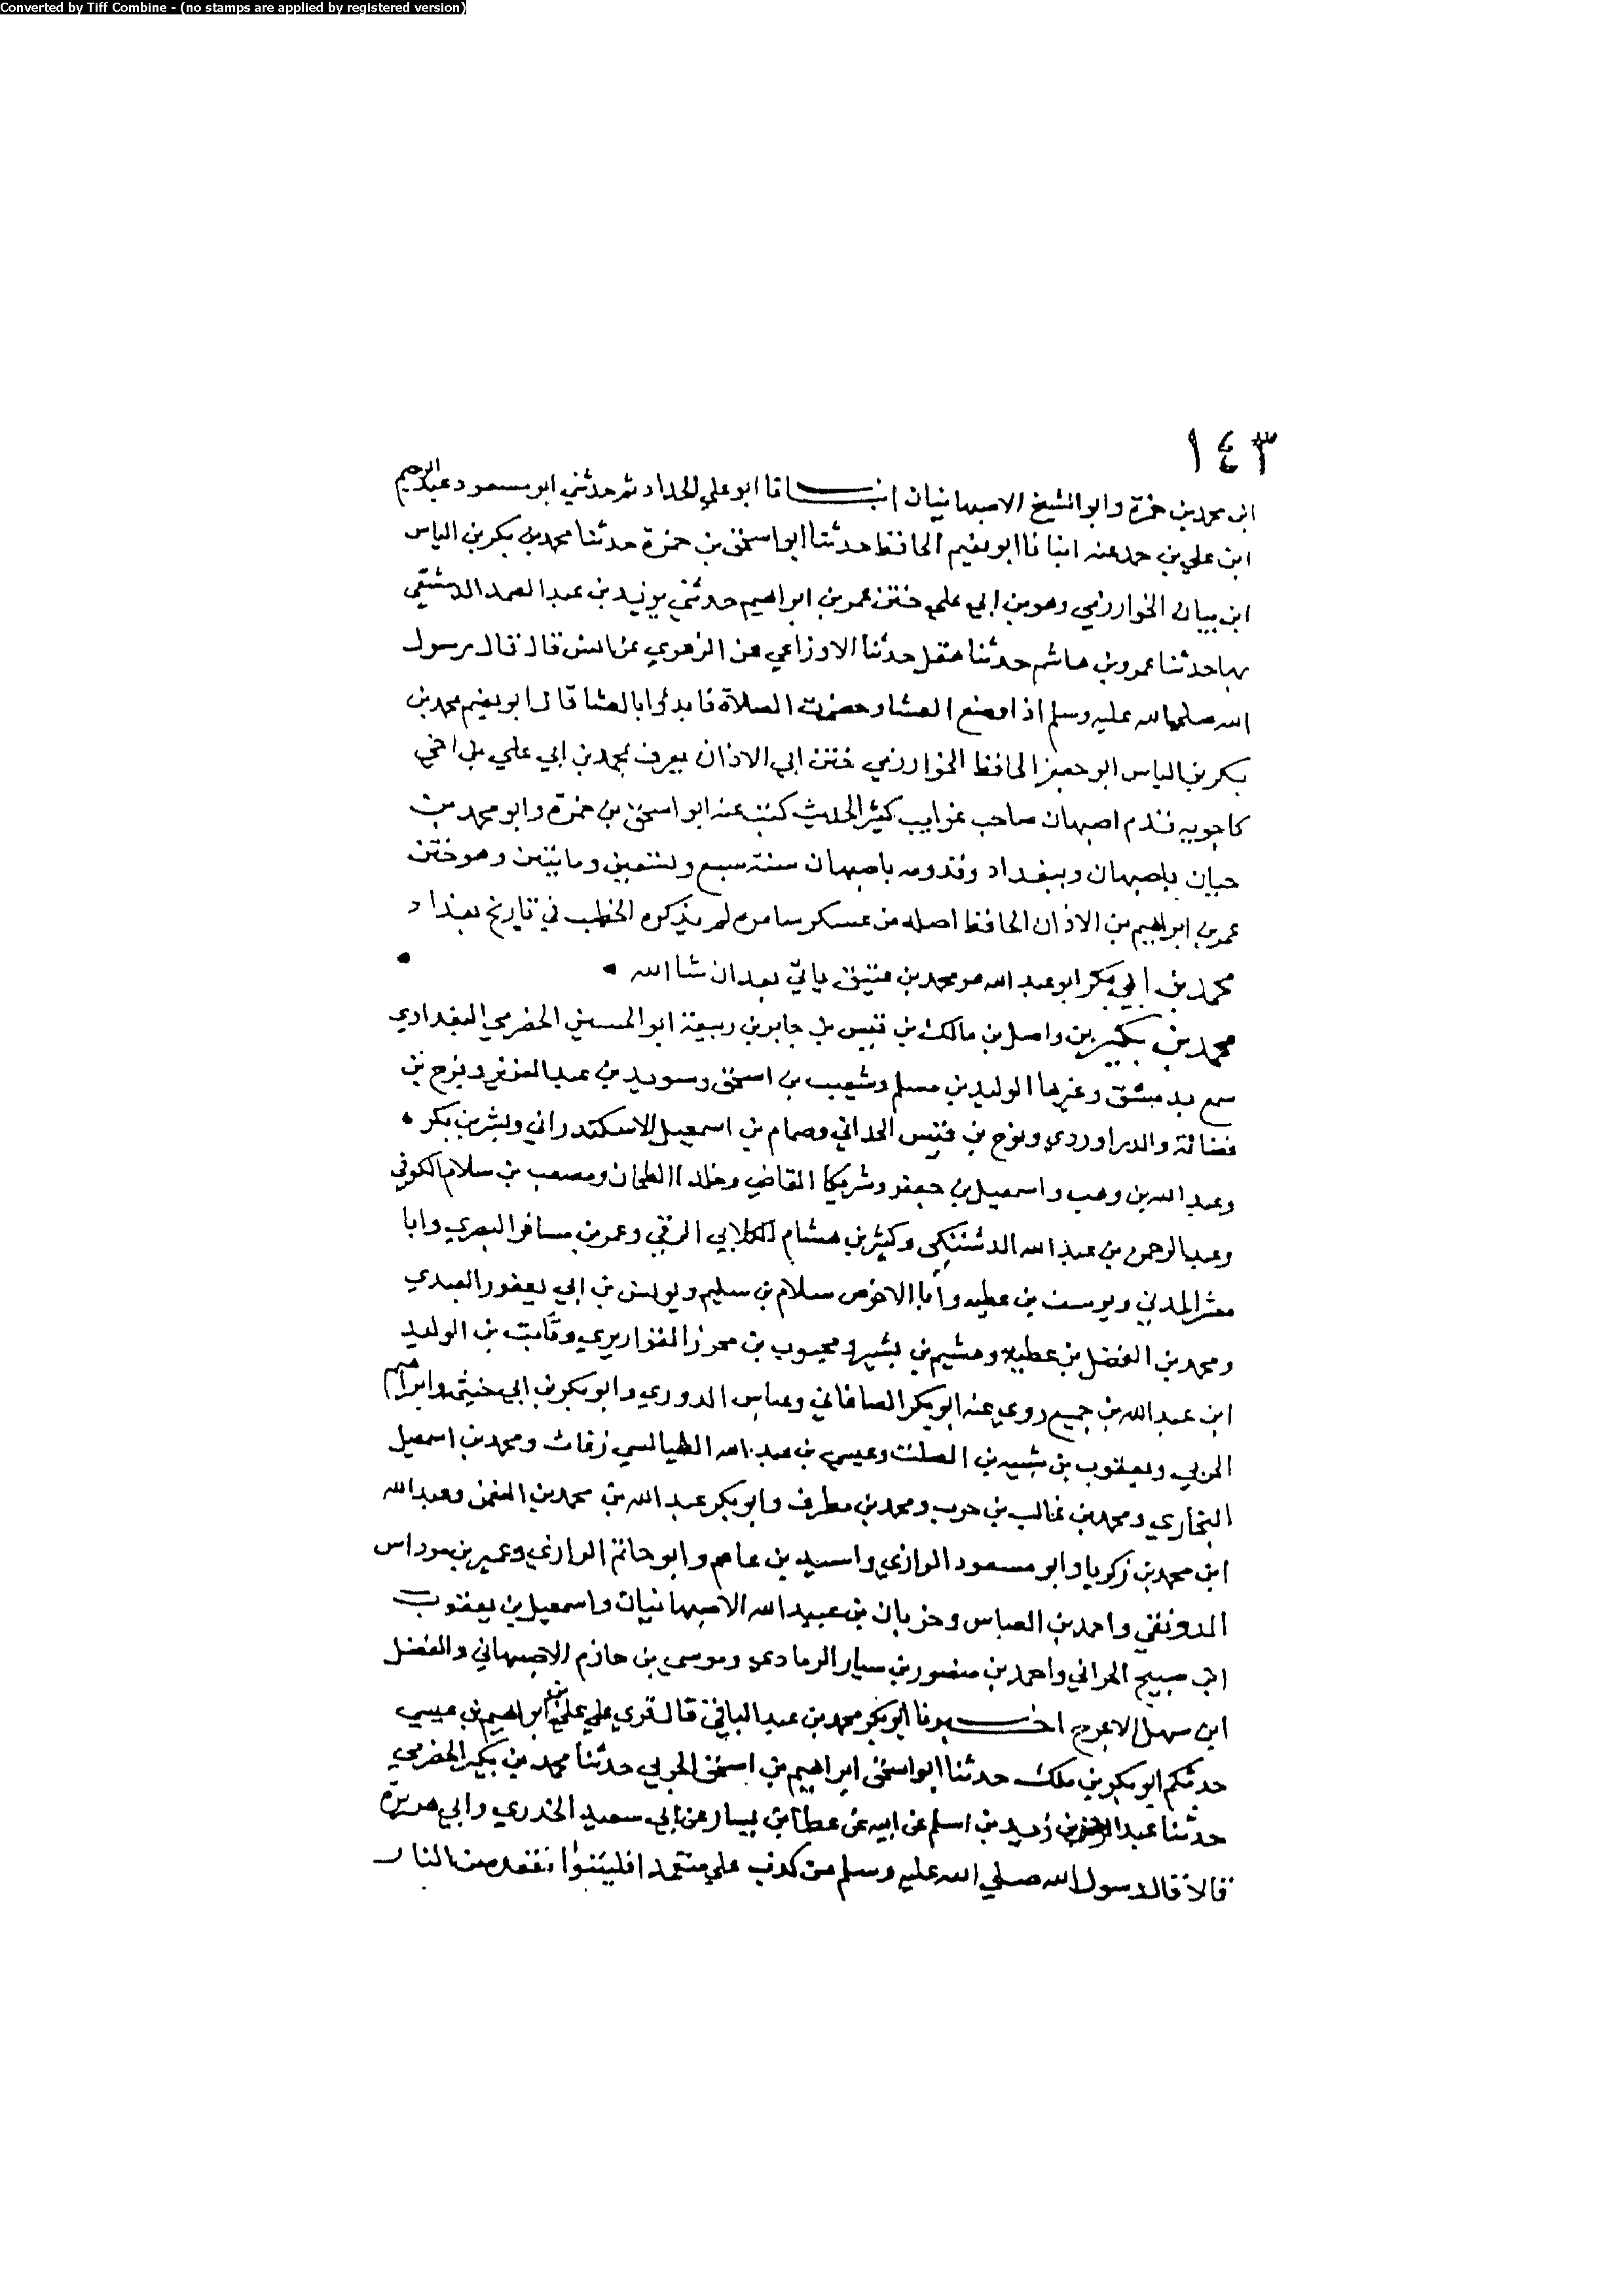 Converted by Tiff Combine - (no stamps are applied by registered version)
١٤٣
ابن محمد بن حمزة وابو الشيخ الاصبهانيان انبانا ابو علي الحداد ثم حدثني ابو مسعود عبد الرحيم
ابن علي بن حمد عنه انبانا ابو نعيم الحافظ حدثنا ابو اسحق بن حمزة حدثنا محمد بن بكر بن الياس
ابن بيان الخوارزمي وهو بن ابي علي ختن عمر بن ابراهيم حدثني يزيد بن عبد الصمد الدمشقي
بها حدثنا عمرو بن هاشم حدثنا هقل حدثنا الاوزاعي عن الزهري عن انس قال قال رسول
الله صلي الله عليه وسلم اذا وضع العشا وحضرت الصلاة فابدؤا بالعشا قال ابو نعيم محمد بن
بكر بن الياس ابو جعفر الحافظ الخوارزمي ختن ابي الاذان يعرف بمحمد بن ابي علي بل اخي
كاجويه قدم اصبهان صاحب غرايب كثير الحديث كتب عنه ابو اسحق بن حمزة وابو محمد بن
حيان باصبهان وببغداد وقدومه باصبهان سنة سبع وتسعين ومايتين وهو ختن
عمر بن ابراهيم بن الاذان الحافظ اصله من عسكر سامره لم يذكره الخطيب في تاريخ بغداد
محمد بن ابي بكر ابو عبد الله هو محمد بن عتيق ياتي بعد ان شا الله
محمد بن بكير بن واصل بن مالك بن قيس بن جابر بن ربيعة ابو الحسين الحضرمي البغدادي
سمع بدمشق وغيرها الوليد بن مسلم وشعيب بن اسحق وسويد بن عبد العزيز وفرج بن
فضالة والدراوردي ونوح بن قيس الحداني وضمام بن اسمعيل الاسكندراني وبشر بن بكر
وعبد الله بن وهب واسمعيل بن جعفر وشريكا القاضي وخالدا الطحان ومصعب بن سلام الكوفي
وعبد الرحمن بن عبد الله الدشتكي وكثير بن هشام الكلابي الرقي وعمر بن مسافر البصري وابا
معشر المدني ويوسف بن عطيه وابا الاحوص سلام بن سليم ويونس بن ابي يعفور العبدي
ومحمد بن الفضل بن عطية وهشيم بن بشير ومحبوب بن محرز القواريري وثابت بن الوليد
ابن عبد الله بن جميع روي عنه ابو بكر الصاغاني وعباس الدوري وابو بكر بن ابي خيثمة وابراهيم
الحربي ويعقوب بن شيبه بن الصلت وعيسي بن عبد الله الطيالسي زغاث ومحمد بن اسمعيل
البخاري ومحمد بن غالب بن حرب ومحمد بن مطرف وابو بكر عبد الله بن محمد بن النعمن وعبد الله
ابن محمد بن زكريا وابو مسعود الرازي واسيد بن عاصم وابو حاتم الرازي وعمير بن مرداس
الدونقي واحمد بن العباس وخزبان بن عبيد الله الاصبهانيان واسمعيل بن يعقوب
ابن صبيح الحراني واحمد بن منصور بن سيار الرمادي وموسي بن حازم الاصبهاني والفضل
ابن سهل الاعرج اخبرنا ابو بكر محمد بن عبد الباقي قال قري علي علي بن ابراهيم بن عيسي
حدثكم ابو بكر بن ملك حدثنا ابو اسحق ابراهيم بن اسحق الحربي حدثنا محمد بن بكير الحضرمي
حدثنا عبد الرحمن بن زيد بن اسلم عن ابيه عن عطا بن يسار عن ابي سعيد الخدري وابي هريرة
قالا قال رسول الله صلي الله عليه وسلم من كذب علي متعمدا فليتبوا مقعده من النار